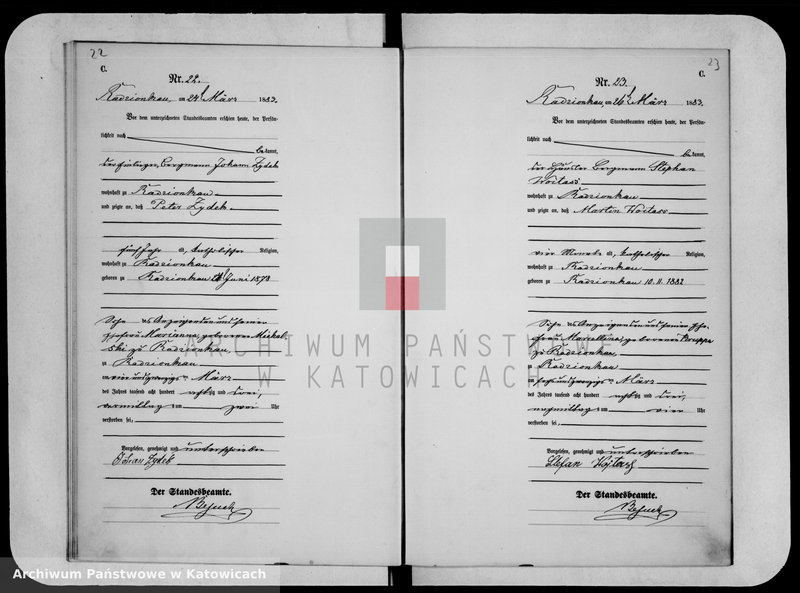 22
C.
Nr. 22.
Radzionkau, am 24 März 1883.
Vor dem unterzeichneten Standesbeamten erschien heute, der Persön-
lichkeit nach
bekannt,
der Bergmann Johann Zydek
wohnhaft zu Radzionkau
und zeigte an, daß Peter Zydek
fünf Jahr alt, katholischer Religion,
wohnhaft zu Radzionkau
geboren zu Radzionkau Juni 1878
Sohn des Anzeigenden und seiner
Ehefrau Marianna geborenen
zu Radzionkau,
zu Radzionkau
am vier und zwanzigsten März
des Jahres tausend acht hundert achtzig und drei,
vormittag um zwei Uhr
verstorben sei,
Vorgelesen, genehmigt und unterschrieben
Johan Zydek
Der Standesbeamte.
23
C.
Nr. 23.
Radzionkau, am 26 März 1883.
Vor dem unterzeichneten Standesbeamten erschien heute, der Persön-
lichkeit nach
bekannt,
der Häusler Bergmann Stephan
Woitass
wohnhaft zu Radzionkau
und zeigte an, daß Martin Woitass
vier Monate alt, katholischer Religion,
wohnhaft zu Radzionkau
geboren zu Radzionkau 10. 11. 1882
Sohn des Anzeigenden und seiner Ehe-
frau geborenen
zu Radzionkau
zu Radzionkau
am sechs und zwanzigsten März
des Jahres tausend acht hundert achtzig und drei,
nachmittag um vier Uhr
verstorben sei,
Vorgelesen, genehmigt und unterschrieben
Stefan
Der Standesbeamte.
ARCHIWUM PAŃSTWOWE
W KATOWICACH
Archiwum Państwowe w Katowicach